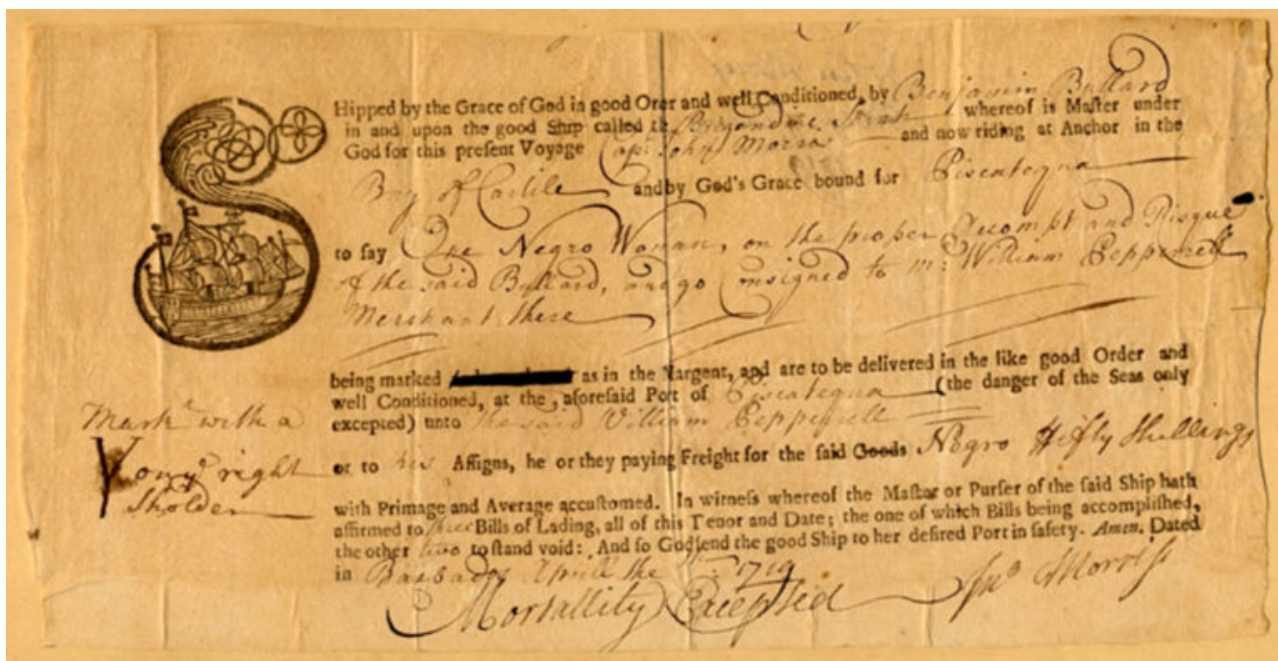 SHipped by the Grace of God in good Orer and well Conditioned, by Benjamin Bullard
in and upon the good Ship called the Brigandine whereof is Master under
God for this present Voyage Cap: John Morris and now riding at Anchor in the
Bay of Carlile and by God's Grace bound for Piscatequa
to say One Negro Woman, on the proper Accompt and Risque
of the said Bullard, and go Consigned to mr: William Pepperrell
Merchant there
being marked as in the Margent, and are to be delivered in the like good Order and
well Conditioned, at the aforesaid Port of Piscatequa (the danger of the Seas only
excepted) unto the said William Pepperrell
Markt with a
Y on ye right
sholder
or to his Assigns, he or they paying Freight for the said Goods Negro Fifty Shillings
with Primage and Average accustomed. In witness whereof the Master or Purser of the said Ship hath
affirmed to three Bills of Lading, all of this Tenor and Date; the one of which Bills being accomplished,
the other two to stand void: And so God send the good Ship to her desired Port in safety. Amen. Dated
in Barbados Aprill the 1719
Mortallity Excepted Jno Morris